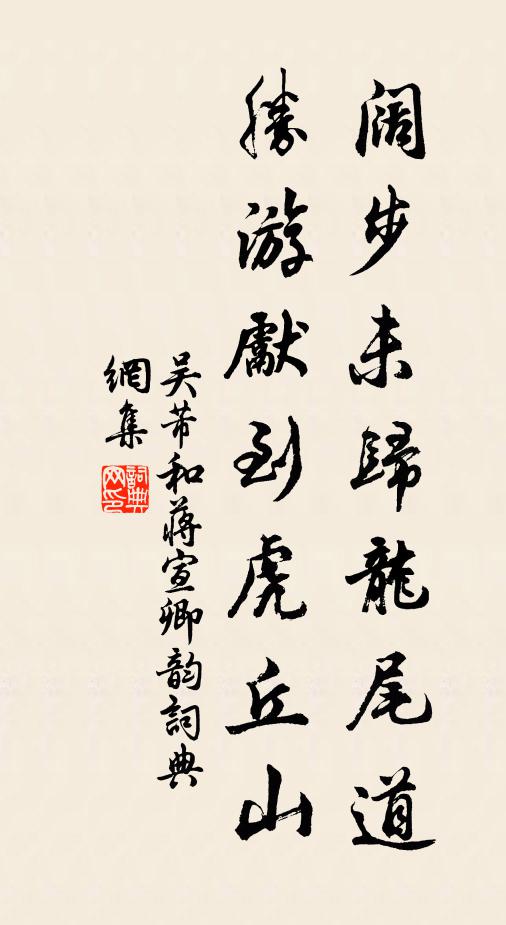 阔步未歸龍尾道
勝游獻到虎丘山
吴芾和蔣宣卿韵詞典
網集
詞典
网印